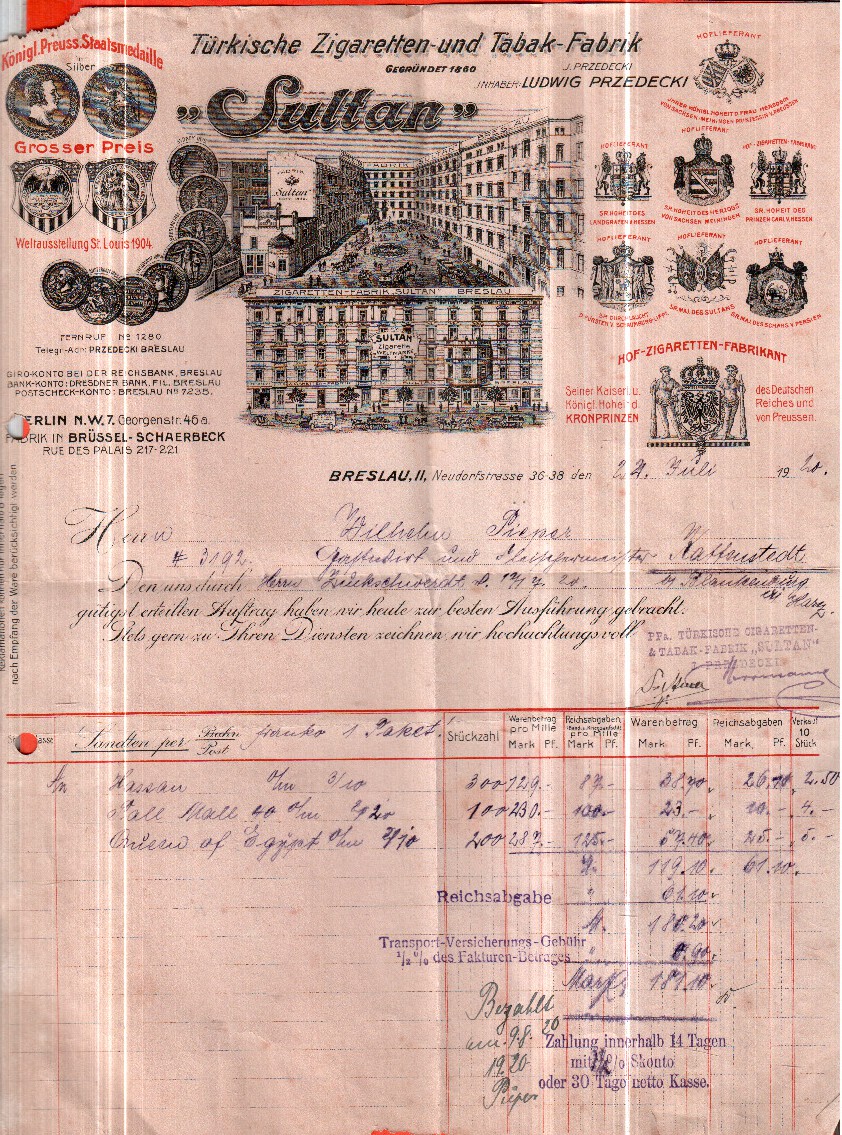 Königl. Preuss. Staatsmedaille
in Silber
Grosser Preis
Weltausstellung St. Louis 1904.
Türkische Zigaretten- und Tabak-Fabrik
GEGRÜNDET 1860
J. PRZEDECKI
INHABER: LUDWIG PRZEDECKI
„Sultan"
FABRIK
„Sultan"
ZIGARETTEN-FABRIK „SULTAN" BRESLAU
„SULTAN"
Zigarette
WELTMARKE
HOFLIEFERANT
IHRER KÖNIGL. HOHEIT D. FRAU HERZOGIN
VON SACHSEN-MEININGEN PRINZESSIN V. PREUSSEN
HOFLIEFERANT
SR. HOHEIT DES
LANDGRAFEN V. HESSEN
HOFLIEFERANT
SR. HOHEIT DES HERZOGS
VON SACHSEN MEININGEN
HOF-ZIGARETTEN-FABRIKANT
SR. HOHEIT DES
PRINZEN CARL V. HESSEN
HOFLIEFERANT
SR. DURCHLAUCHT
D. FÜRSTEN V. SCHAUMBURG-LIPPE
HOFLIEFERANT
SR. MAJ. DES SULTANS
HOFLIEFERANT
SR. MAJ. DES SCHAHS V. PERSIEN
HOF-ZIGARETTEN-FABRIKANT
Seiner Kaiserl. u.
Königl. Hoheit d.
KRONPRINZEN
des Deutschen
Reiches und
von Preussen.
FERNRUF No 1280
Telegr.-Adr: PRZEDECKI BRESLAU
GIRO-KONTO BEI DER REICHSBANK, BRESLAU
BANK-KONTO: DRESDNER BANK, FIL. BRESLAU
POSTSCHECK-KONTO: BRESLAU No 7235.
BERLIN N.W.7. Georgenstr. 46a.
FABRIK IN BRÜSSEL-SCHAERBECK
RUE DES PALAIS 217-221
nach Empfang der Ware berücksichtigt werden
BRESLAU, II, Neudorfstrasse 36-38 den 24. Juli 1920.
Herrn Wilhelm Pieper
# 3192. Gasthofswirt und Fleischermeister Kattenstedt
Den uns durch Herrn Zuckschwerdt d. 17/7 20 b/ Blankenburg
Harz.
gütigst erteilten Auftrag haben wir heute zur besten Ausführung gebracht.
Stets gern zu Ihren Diensten zeichnen wir hochachtungsvoll
PPa. TÜRKISCHE CIGARETTEN-
& TABAK-FABRIK „SULTAN"
J. PRZEDECKI
Sandten per Bahn Post franko 1 Paket:
Stückzahl
Warenbetrag pro Mille
Mark Pf.
Reichsabgaben
pro Mille
Mark Pf.
Warenbetrag
Mark. Pf.
Reichsabgaben
Mark, Pf.
Verkauf
10
Stück
Hassan o/m 3/10 300 129.- 87.- 38.70 26.10 2.50
Pall Mall 40 o/m 5/20 100 230.- 100.- 23.- 10.- 4.-
Queen of Egypt o/m 2/10 200 287.- 125.- 57.40 25.- 5.-
M. 119.10 61.10
Reichsabgabe " 61.10
M. 180.20
Transport-Versicherungs-Gebühr
1/2 % des Fakturen-Betrages " 0.90
Mark 181.10
Bezahlt
am 9.8.20
1920
Pieper
Zahlung innerhalb 14 Tagen
mit % Skonto
oder 30 Tage netto Kasse.